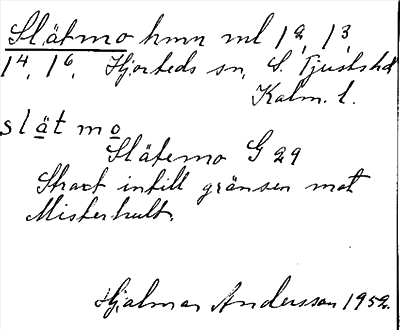 Slätmo hmn ml 1², 1³,
1⁴, 1⁶, Hjorteds sn, S. Tjusts hd
Kalm. l.
slät mo
Slätemo G 29
Strax intill gränsen mot
Misterhult.
Hjalmar Andersson 1952.